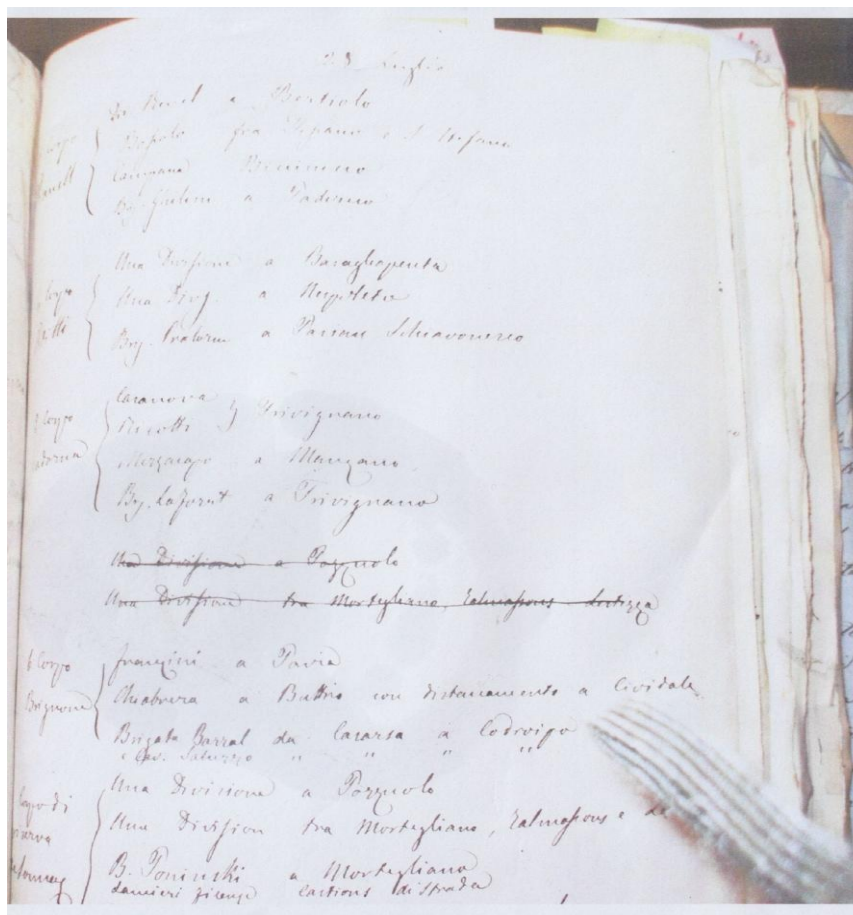 23 Luglio
De Revel a Bertiolo
fra Sepano e S. Stefano
Campana
a Paderno
Una Divisione a Basagliapenta
Una Divis. a
Brig. Pralormo a Pasian Schiavonesco
Corpo
Casanova
Ricotti } Trivignano
Mezzacapo a Manzano
Brig. LaForest a Trivignano
Una Divisione a Pozzuolo
Una Divisione tra Mortegliano, Talmassons Lestizza
6 Corpo
Brignone
Franzini a Pavia
Chiabrera a Buttrio con distaccamento a Cividale
Brigata Barral da Casarsa a Codroipo
" Cav. Saluzzo " " " "
Una Divisione a Pozzuolo
Una Division tra Mortegliano, Talmassons e Le
B. Poninski a Mortegliano
Lancieri Firenze Castions di Strada